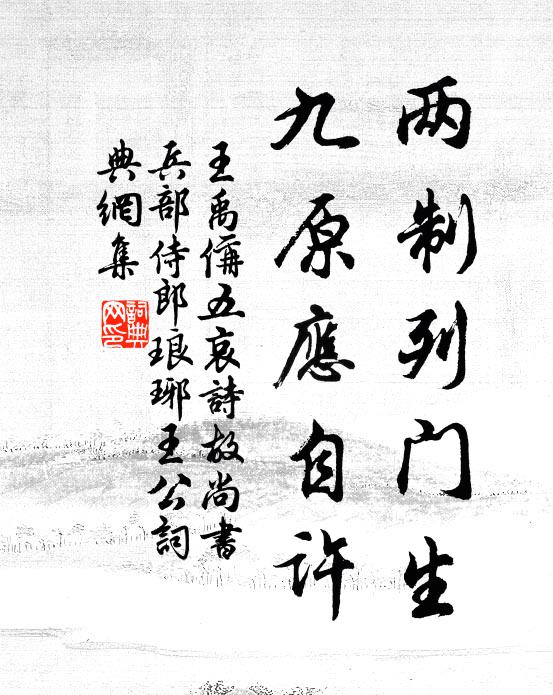 两制列门生
九原應自许
王禹偁五哀詩故尚書
兵部侍郎琅琊王公詞
典網集
詞典网印